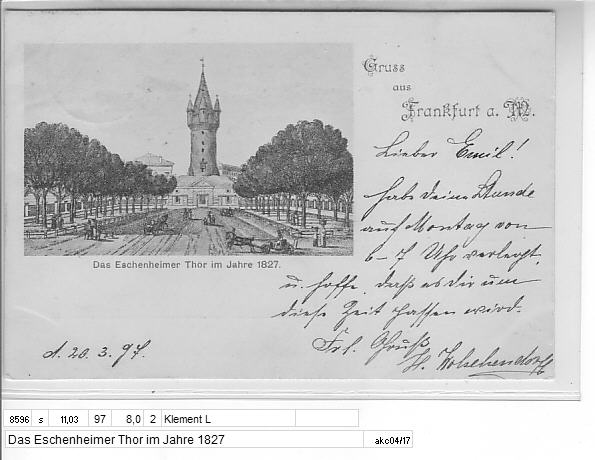 Gruss
aus
Frankfurt a. M.
Lieber Emil!
habe deine Stunde
auf Montag von
6-7 Uhr verlegt,
u. hoffe, daß es dir um
diese Zeit passen wird.
Frl. Gruß
H.
Das Eschenheimer Thor im Jahre 1827.
d. 20. 3. 97.
8596 s 11,03 97 8,0 2 Klement L
Das Eschenheimer Thor im Jahre 1827 akc04/17